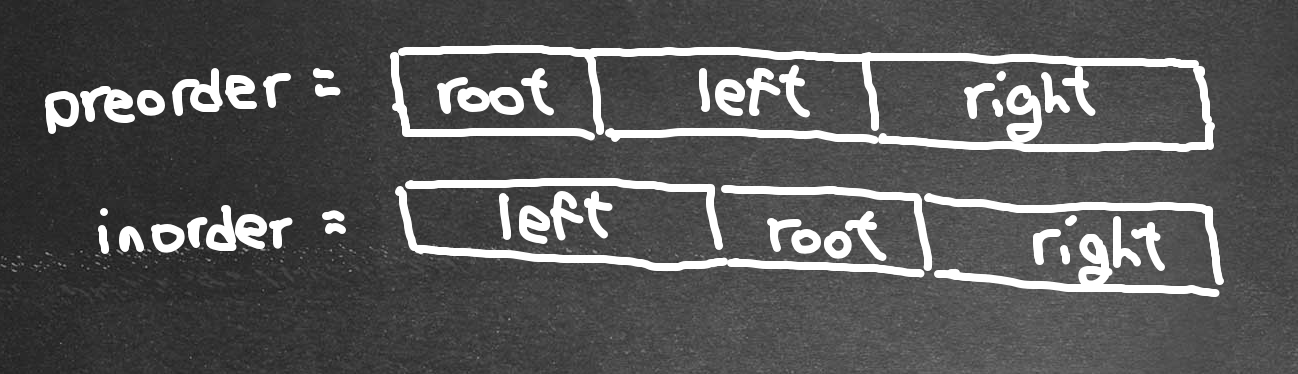 preorder = root left right
inorder = left root right